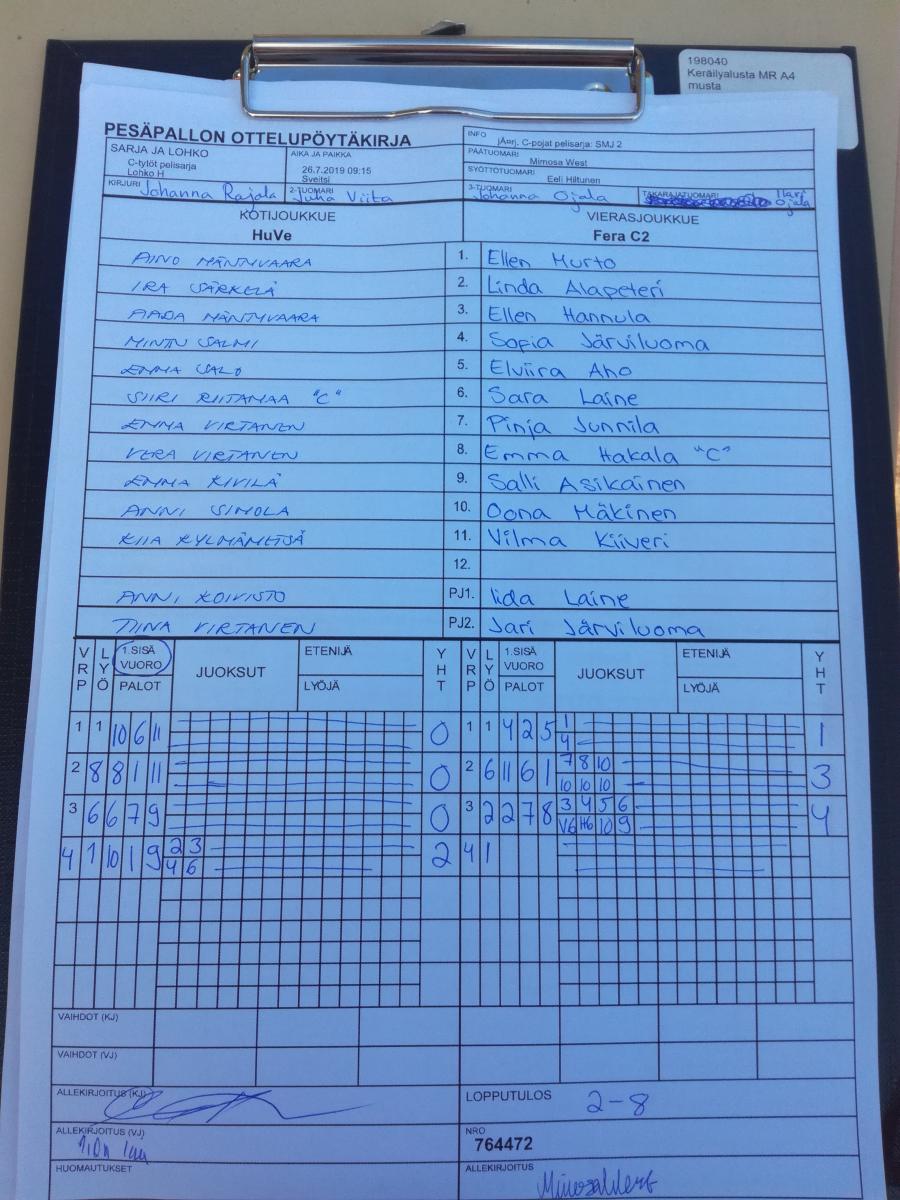 198040
Keräilyalusta MR A4
musta
PESÄPALLON OTTELUPÖYTÄKIRJA
SARJA JA LOHKO
C-tytöt pelisarja
Lohko H
AIKA JA PAIKKA
26.7.2019 09:15
Sveitsi
INFO
jÄ¤rj. C-pojat pelisarja: SMJ 2
PÄÄTUOMARI
Mimosa West
SYÖTTÖTUOMARI
Eeli Hiltunen
KIRJURI Johanna Rajala 2-TUOMARI Juha Viita 3-TUOMARI Johanna Ojala TAKARAJATUOMARI Ilari Ojala
KOTIJOUKKUE VIERASJOUKKUE
HuVe Fera C2
AINO MÄNTYVAARA 1. Ellen Murto
IRA SÄRKELÄ 2. Linda Alapeteri
AADA MÄNTYVAARA 3. Ellen Hannula
MINTU SALMI 4. Sofia Järviluoma
EMMA SALO 5. Elviira Aho
SIIRI RIITAMAA "C" 6. Sara Laine
EMMA VIRTANEN 7. Pinja Junnila
VERA VIRTANEN 8. Emma Hakala "C"
EMMA KIVILÄ 9. Salli Asikainen
ANNI SIMOLA 10. Oona Mäkinen
KIIA KYLMÄMETSÄ 11. Vilma Kiiveri
12.
ANNI KOIVISTO PJ1. Iida Laine
TIINA VIRTANEN PJ2. Jari Järviluoma
VRP LYÖ 1.SISÄ VUORO PALOT JUOKSUT ETENIJÄ LYÖJÄ YHT VRP LYÖ 1.SISÄ VUORO PALOT JUOKSUT ETENIJÄ LYÖJÄ YHT
1 1 10 6 11 0 1 1 4 2 5 1 1
4
2 8 8 1 11 0 2 6 11 6 1 7 8 10 3
10 10 10
3 6 6 7 9 0 3 2 2 7 8 3 4 5 6 4
V6 H6 10 9
4 1 10 1 9 2 3 2 4 1
4 6
VAIHDOT (KJ)
VAIHDOT (VJ)
ALLEKIRJOITUS (KJ)
LOPPUTULOS 2-8
ALLEKIRJOITUS (VJ)
NRO
764472
HUOMAUTUKSET
ALLEKIRJOITUS